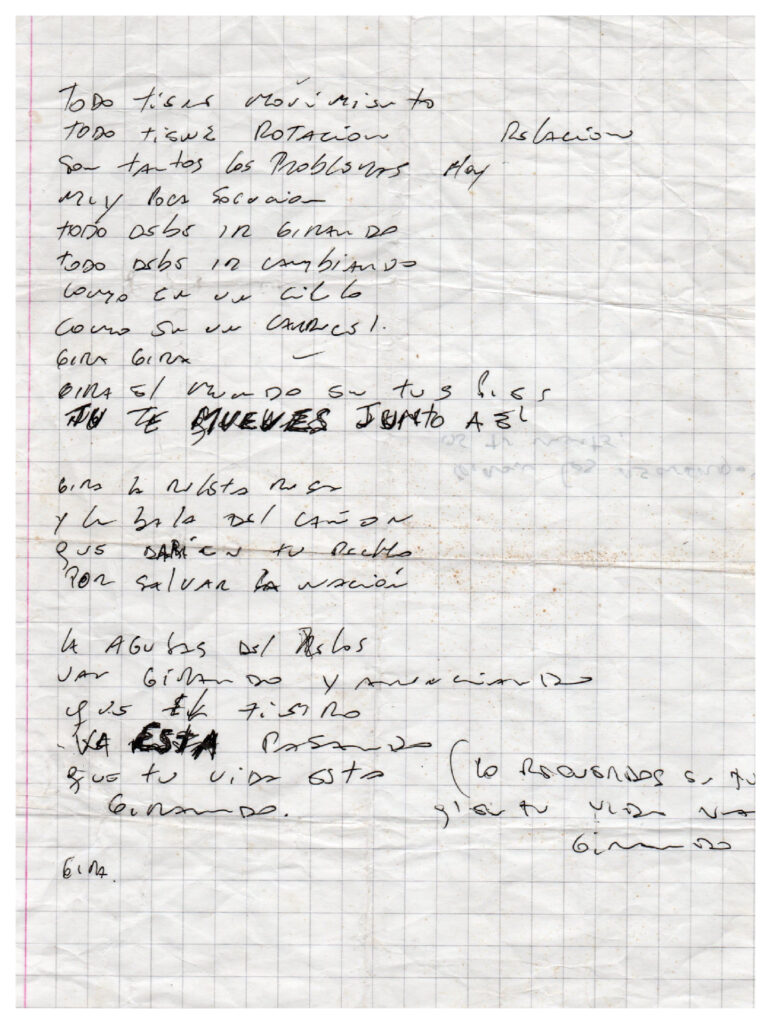 TODO TIENE MOVIMIENTO
TODO TIENE ROTACION RELACION
SON TANTOS LOS PROBLEMAS HOY
MUY POCA SOLUCION
TODO DEBE IR GIRANDO
TODO DEBE IR CAMBIANDO
COMO EN UN CICLO
COMO EN UN CARRUSEL.
GIRA GIRA
GIRA EL MUNDO EN TUS PIES
TU TE MUEVES JUNTO A EL
GIRA LA RULETA RUSA
Y LA BALA DEL CAÑON
QUE EN TU PECHO
POR SALVAR LA NACIÓN
LA AGUJAS DEL RELOS
VAN GIRANDO Y ANUNCIANDO
QUE EL TIEMPO
YA ESTA PASANDO
QUE TU VIDA ESTA (LO RECUERDES EN TU
GIRANDO. TU VIDA VA
GIRANDO
GIRA.